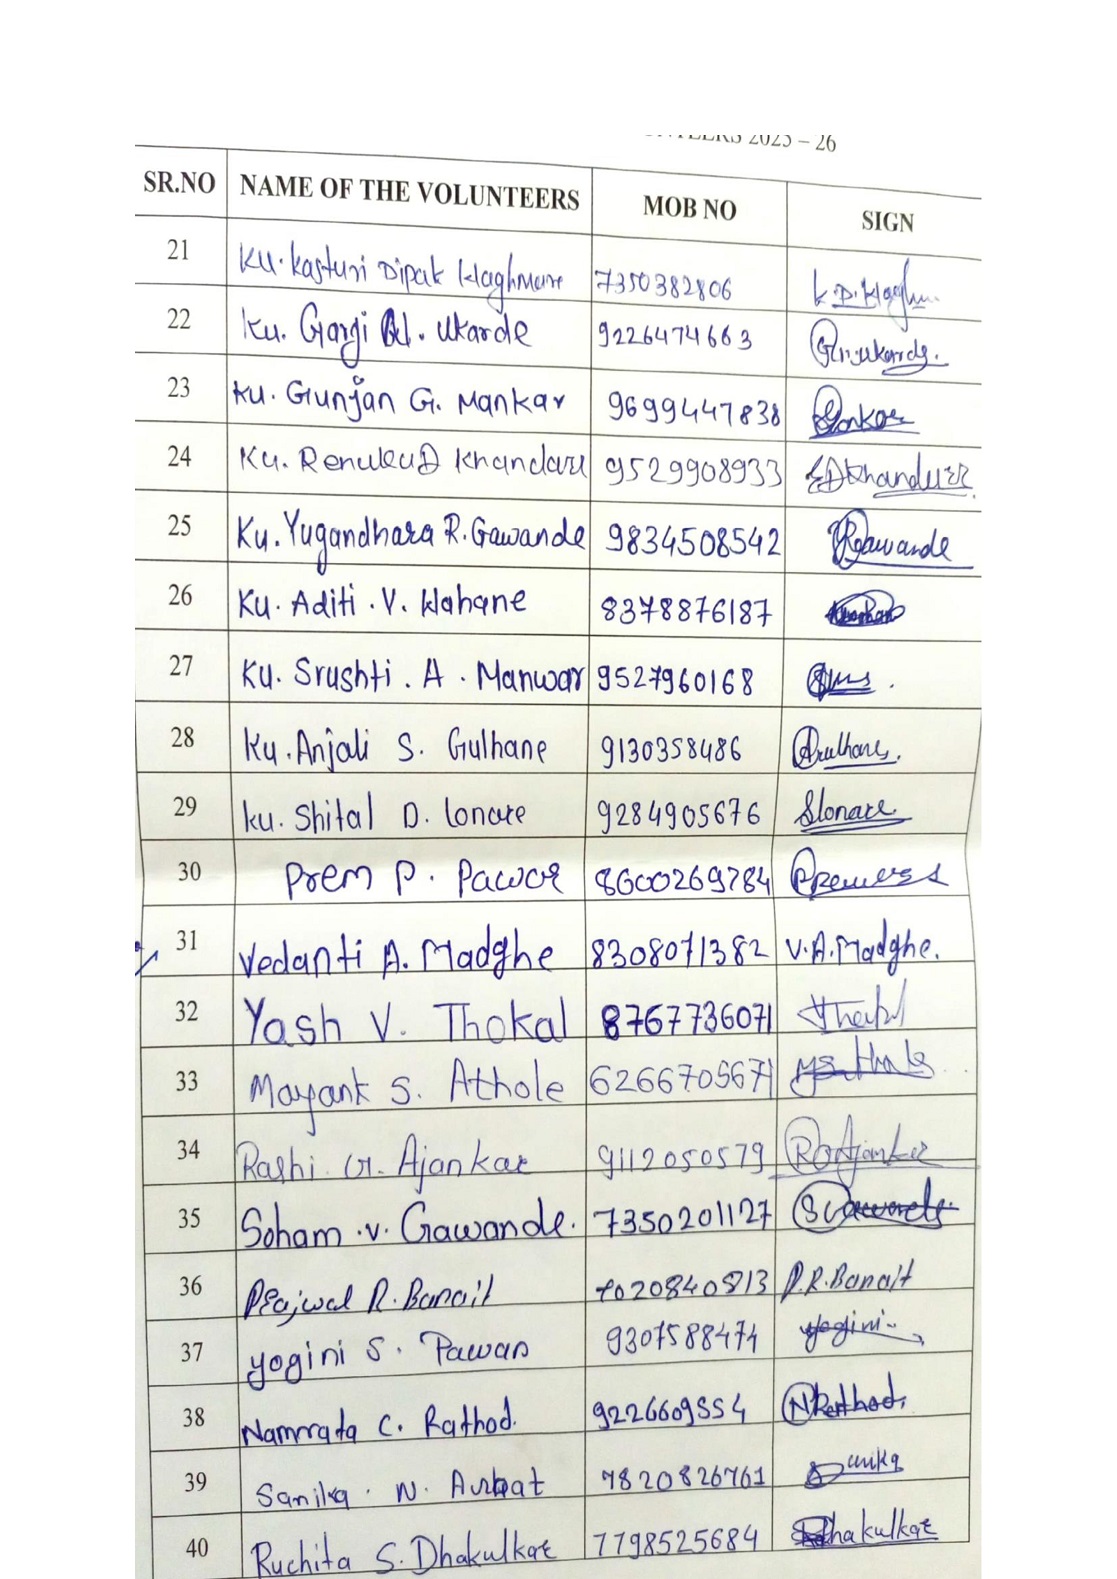 2025 – 26
SR.NO NAME OF THE VOLUNTEERS MOB NO SIGN
21 Ku. Kasturi Dipak Waghmare 7350382806 K.D. Wagh
22 Ku. Gargi N. Ukarde 9226474663 G.N.Ukarde.
23 Ku. Gunjan G. Mankar 9699447838
24 Ku. Renuku D Khandare 9529908933
25 Ku. Yugandhara R. Gawande 9834508542 Gawande
26 Ku. Aditi . V. Wahane 8378876187
27 Ku. Srushti . A . Manwar 9527960168
28 Ku. Anjali S. Gulhane 9130358486
29 Ku. Shital D. Lonare 9284905676 SLonare
30 Prem P. Pawar 8600269784
31 Vedanti A. Madghe 8308071382 V.A.Madghe.
32 Yash V. Thokal 8767736071
33 Mayank S. Athole 6266705671
34 Rashi G. Ajankar 9112050579 Ajankar
35 Soham .V. Gawande. 7350201127
36 Prajwal R. Banait 7020840813 P.R.Banait
37 Yogini S. Pawar 9307588474 Yogini
38 Namrata C. Rathod. 9226609554 NRathod.
39 Sanika . N. 7820826761 Sanika
40 Ruchita S. Dhakulkar 7798525684 Dhakulkar